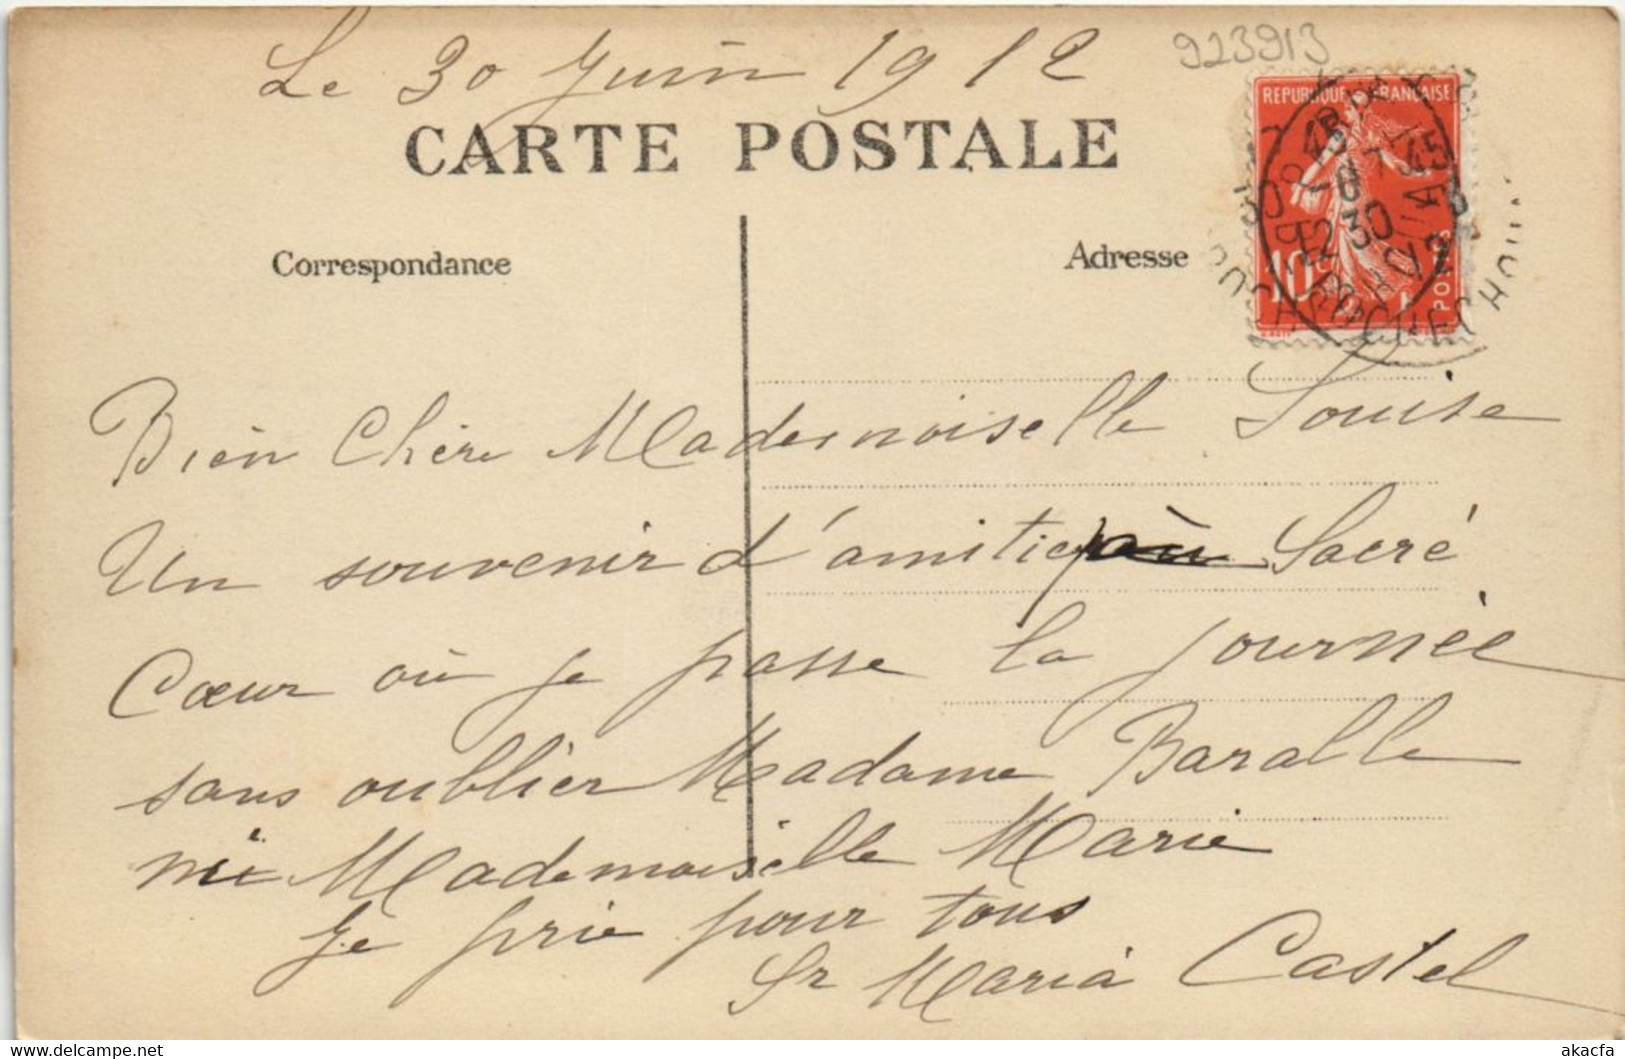 923913
Le 30 Juin 1912
CARTE POSTALE
REPUBLIQUE FRANÇAISE
10c
POSTES
Correspondance
Adresse
Bien Chère Mademoiselle Louise
Un souvenir d'amitié Sacré
Cœur où je passe la journée
sans oublier Madame Baralle
ni Mademoiselle Marie
Je prie pour tous
Sr Maria Castel
akacfa